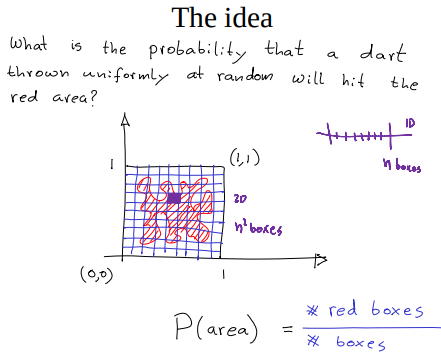 The idea
What is the probability that a dart
thrown uniformly at random will hit the
red area?
1D
n boxes
1
(1,1)
2D
n² boxes
(0,0)
1
P(area) = # red boxes
# boxes